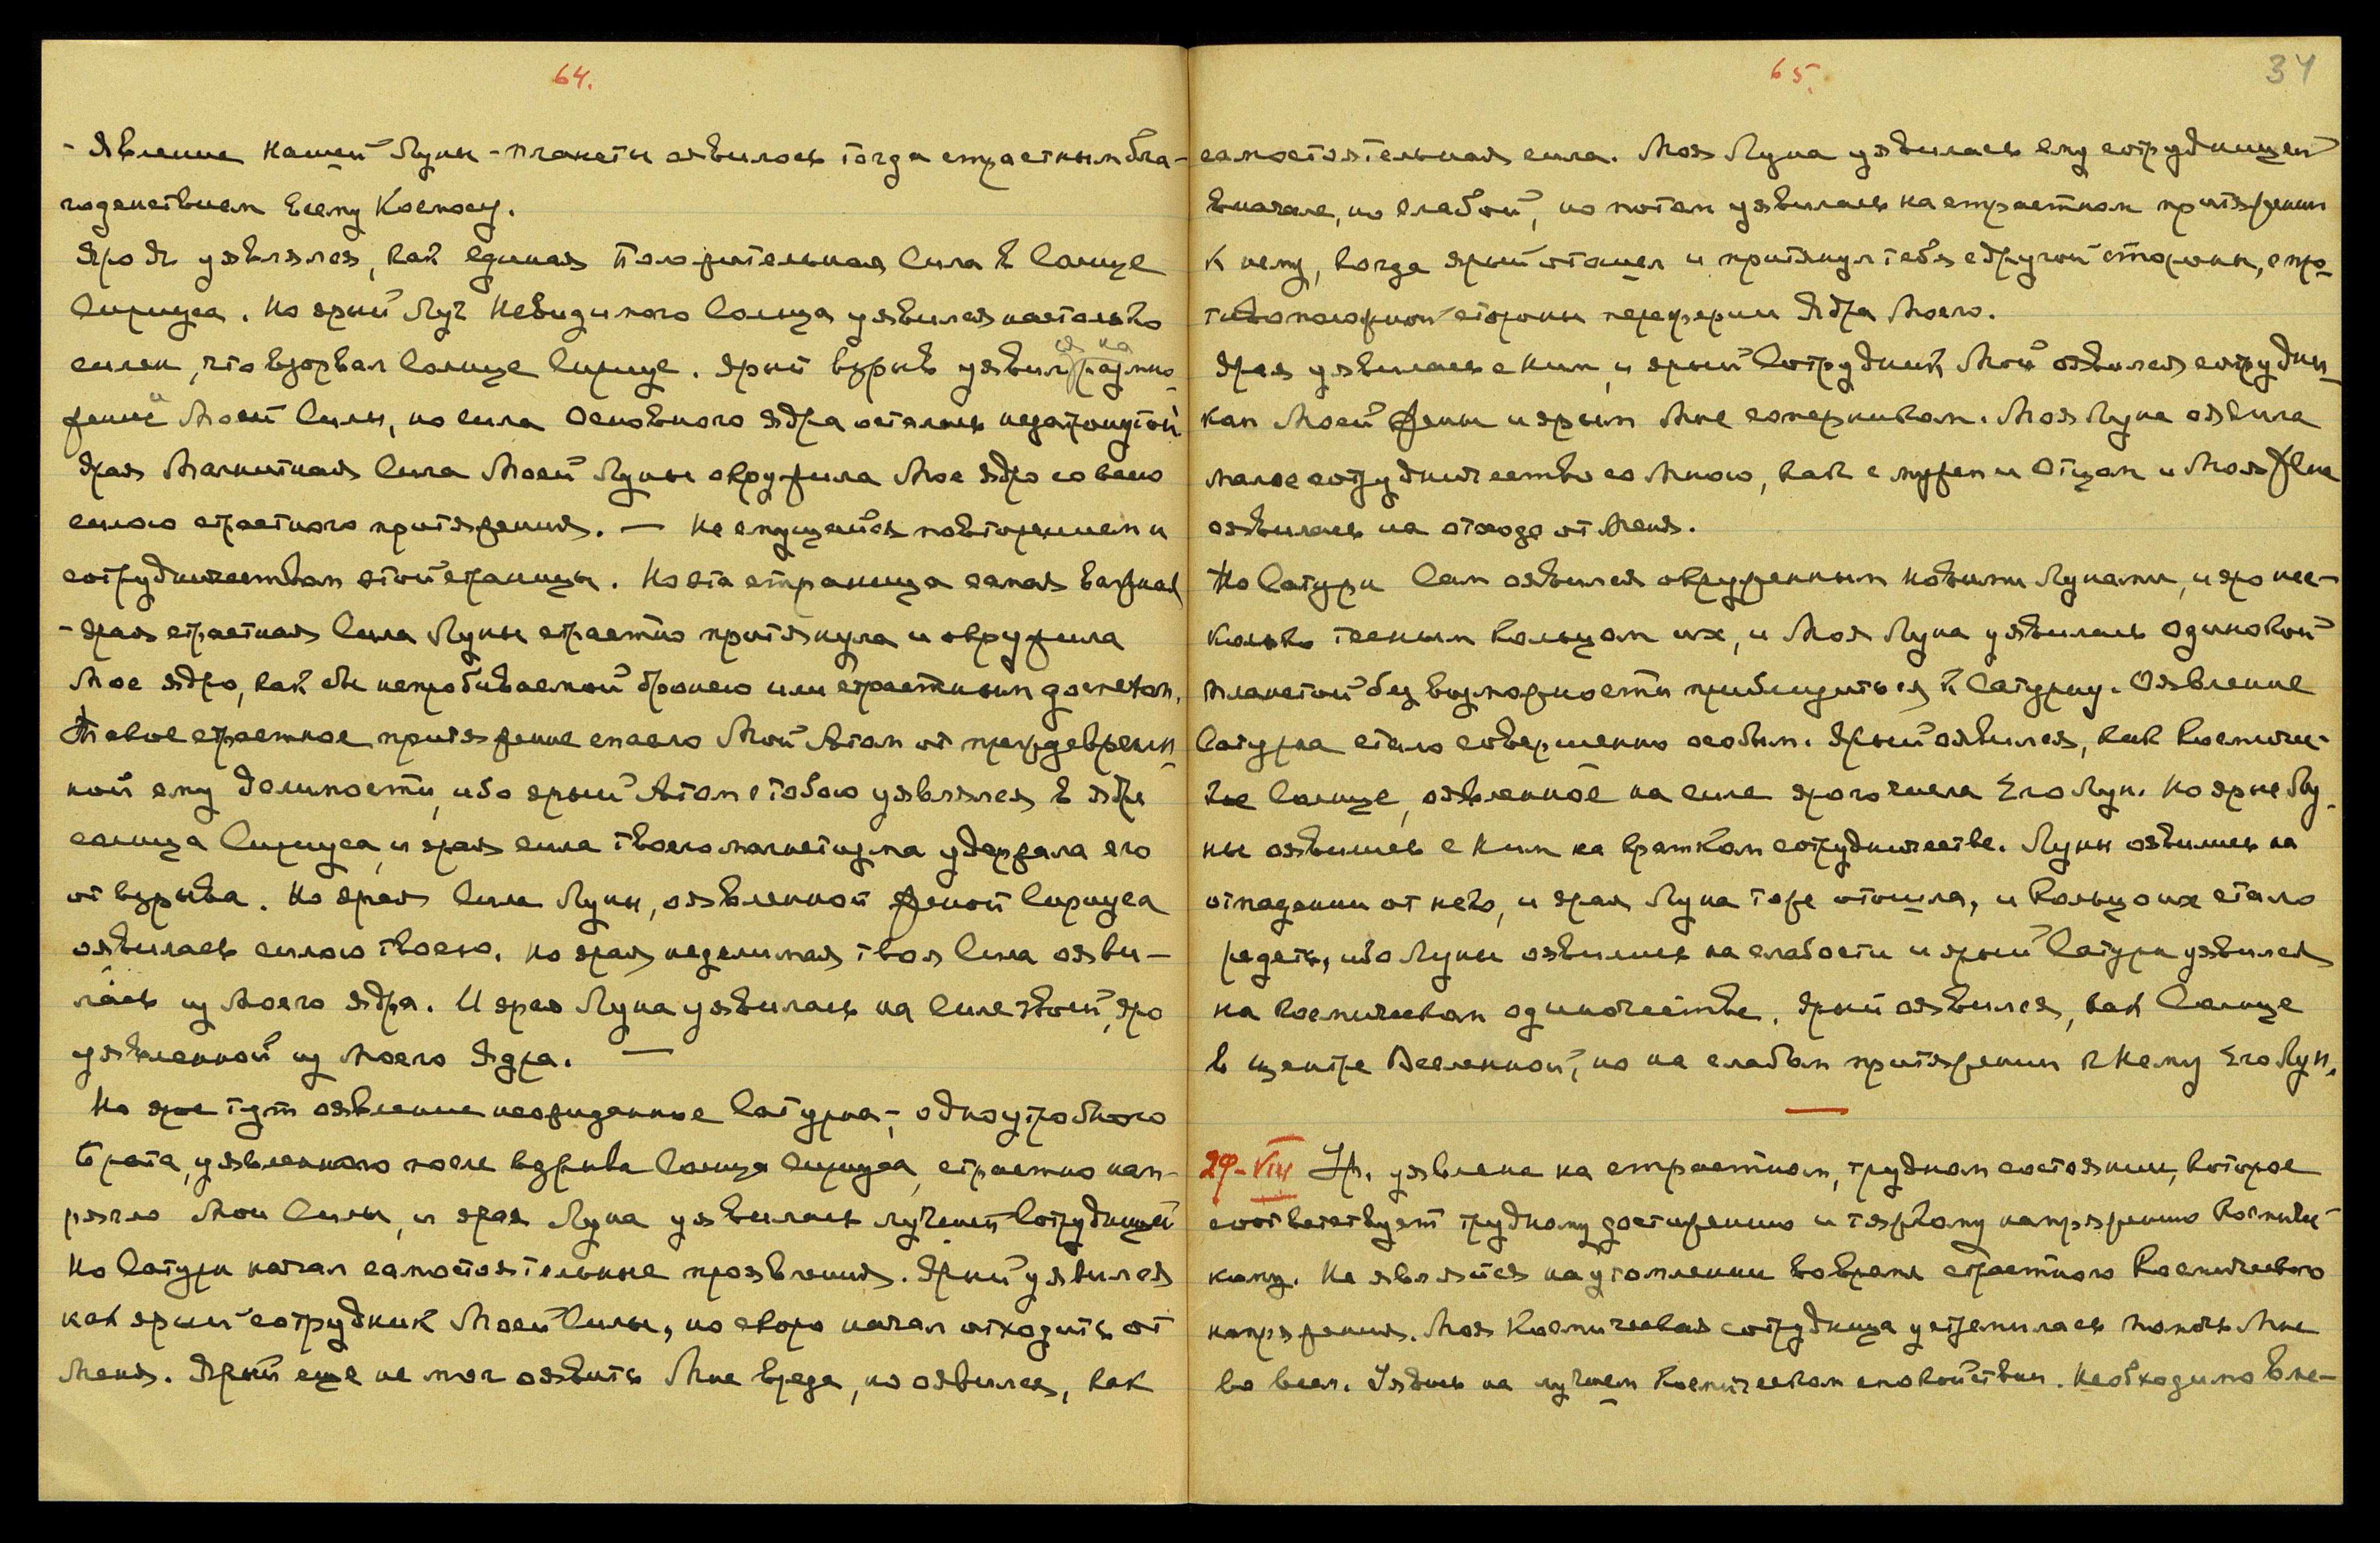 64.
- Явление нашей Луны - планеты оявилось тогда страстным бла-
годенствием всему Космосу.
Яро Я уявлялся, как единая Положительная Сила в Солнце
Сириуса. Но ярый Луч Невидимого Солнца уявился настолько
силен, что взорвал Солнце Сириус. Ярый взрыв уявился на размно-
жении Моей Силы, но сила Основного Ядра осталась незатронутой.
Ярая Магнитная Сила Моей Луны окружила Мое Ядро со всею
силою страстного притяжения. — Не смущайся повторением и
сотрудничеством этой страницы. Но эта страница самая важная
- ярая страстная Сила Луны страстно притянула и окружила
Мое ядро, как бы непробиваемой бронею или страстным доспехом.
Такое страстное притяжение спасло Мой Атом от преждевремен-
ной ему делимости, ибо ярый Атом с тобою уявлялся в ядре
солнца Сириуса, и ярая сила твоего магнетизма удержала его
от взрыва. Но ярая Сила Луны, оявленной Женой Сириуса
оявилась силою твоею. Но ярая неделимая твоя Сила ояви-
лась из Моего Ядра. И ярая Луна уявилась на Силе твоей, яро
уявленной из Моего Ядра. —
Но ярое тут оявление неожиданное Сатурна -, одноутробного
Брата, уявленного после взрыва Солнца Сириуса, страстно нап-
рягло Мои Силы, и ярая Луна уявилась лучшей Сотрудницей
Но Сатурн начал самостоятельные проявления. Ярый уявился
как ярый сотрудник Моей Силы, но скоро начал отходить от
Меня. Ярый еще не мог оявить Мне вреда, но оявился, как
65.
34
самостоятельная сила. Моя Луна уявилась ему сотрудницей
вначале, но слабой, но потом уявилась на страстном притяжении
к нему, когда ярый отошел и притянул тебя с другой стороны, с про-
тивоположной стороны периферии Ядра Моего.
Ярая уявилась с ним, и ярый Сотрудник Мой оявился сотрудни-
ком Моей Жены и ярым Мне соперником. Моя Луна оявила
малое сотрудничество со Мною, как с мужем и Отцом и Моя Жена
оявилась на отходе от Меня.
Но Сатурн Сам оявился окруженным новыми Лунами, и яро нес-
колько тесным кольцом их, и Моя Луна уявилась одинокой
планетой без возможности приблизиться к Сатурну. Оявление
Сатурна стало совершенно особым. Ярый оявился, как Космичес-
кое Солнце, оявленное на силе ярого числа Его Лун. Но ярые Лу-
ны оявились с Ним на кратком сотрудничестве. Луны оявились на
отпадении от него, и ярая Луна тоже отошла, и Кольцо их стало
редеть, ибо Луны оявились на слабости и ярый Сатурн уявился
на Космическом одиночестве. Ярый оявился, как Солнце
в центре Вселенной, но на слабом притяжении к Нему Его Лун.
29-VIII Ур. уявлена на страстном, трудном состоянии, которое
соответствует трудному достижению и тяжкому напряжению Космичес-
кому. Не являйся на утомлении во время страстного Космического
напряжения. Моя Космическая сотрудница устремилась помочь Мне
во всем. Уявись на лучшем Космическом спокойствии. Необходимо вне-